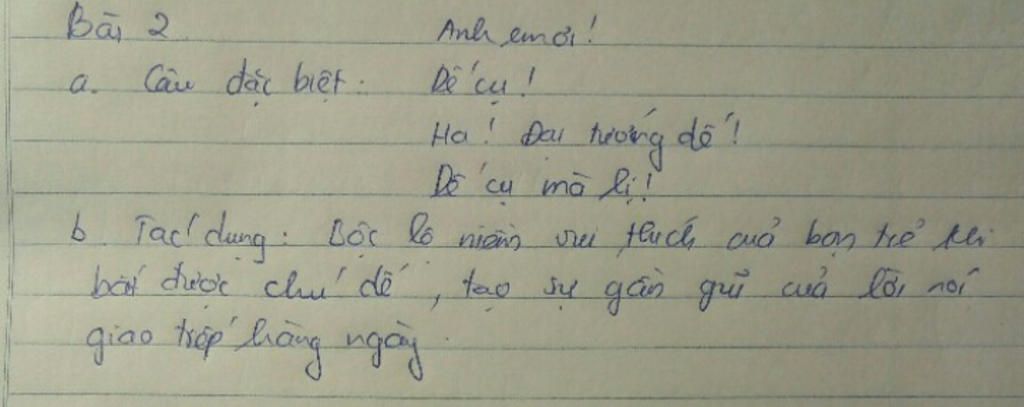 Bài 2 Anh em ơi!
a. Câu đặc biệt: Dế cụ!
Ha! Đại tướng dế!
Dế cụ mà lị!
b. Tác dụng: Bộc lộ niềm vui thích của bọn trẻ khi
bắt được chú dế, tạo sự gần gũi của lời nói
giao tiếp hàng ngày.